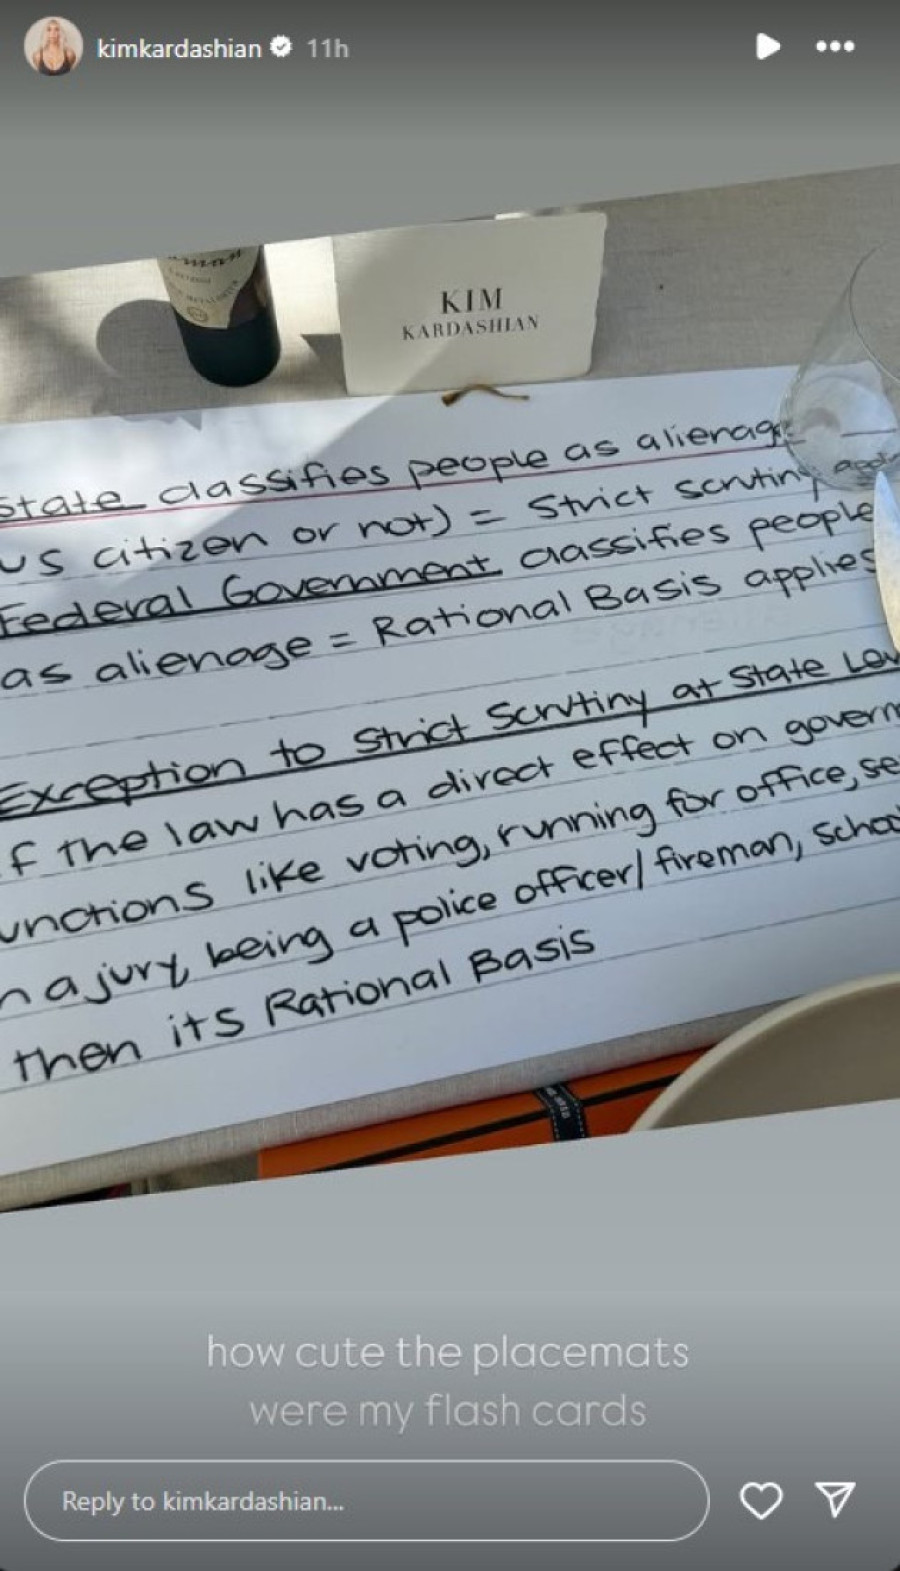 kimkardashian 11h
KIM
KARDASHIAN
State classifies people as alienage
US citizen or not) = Strict scrutiny
Federal Government classifies people
as alienage = Rational Basis applies
Exception to Strict Scrutiny at State Lev
If the law has a direct effect on governm
unctions like voting, running for office, se
n a jury, being a police officer/fireman, school
then its Rational Basis
how cute the placemats
were my flash cards
Reply to kimkardashian...